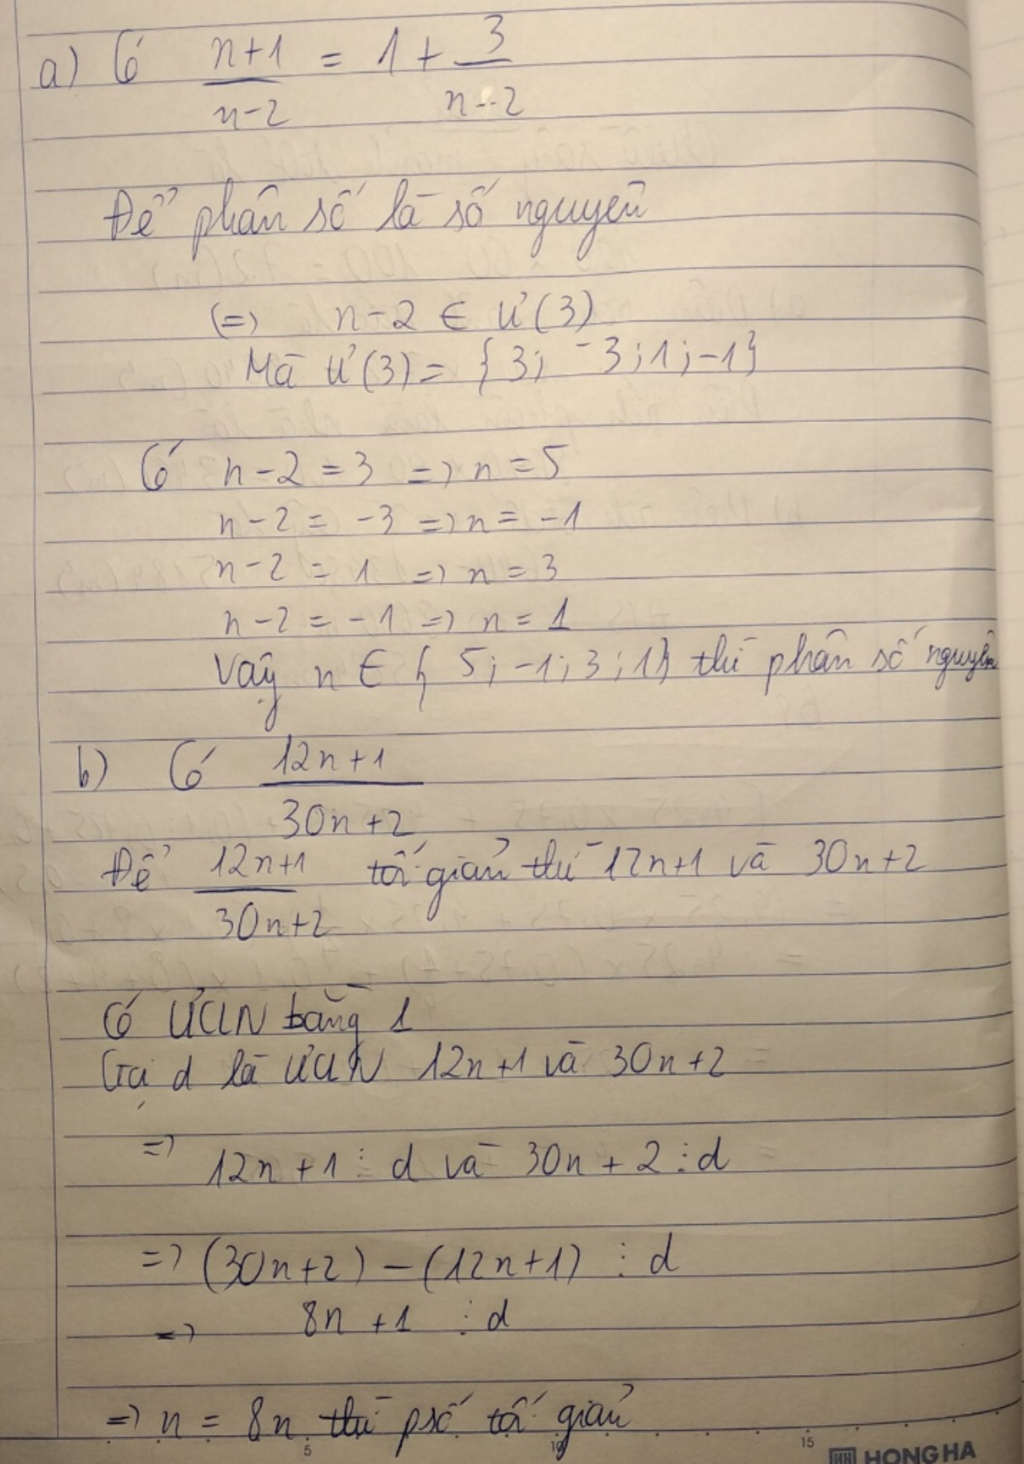 a) Có n+1/n-2 = 1 + 3/n-2
Để phân số là số nguyên
(=) n-2 ∈ Ư(3)
Mà Ư(3) = {3; -3; 1; -1}
Có n-2 = 3 => n = 5
n-2 = -3 => n = -1
n-2 = 1 => n = 3
n-2 = -1 => n = 1
Vậy n ∈ { 5; -1; 3; 1} thì phân số nguyên
b) Có 12n+1/30n+2
Để 12n+1/30n+2 tối giản thì 12n+1 và 30n+2
Có ƯCLN bằng 1
Gọi d là ƯCLN 12n+1 và 30n+2
=> 12n+1 ⋮ d và 30n+2 ⋮ d
=> (30n+2) - (12n+1) ⋮ d
=> 8n+1 ⋮ d
=> n = 8n thì psố tối giản
5 10 15
HH HONG HA